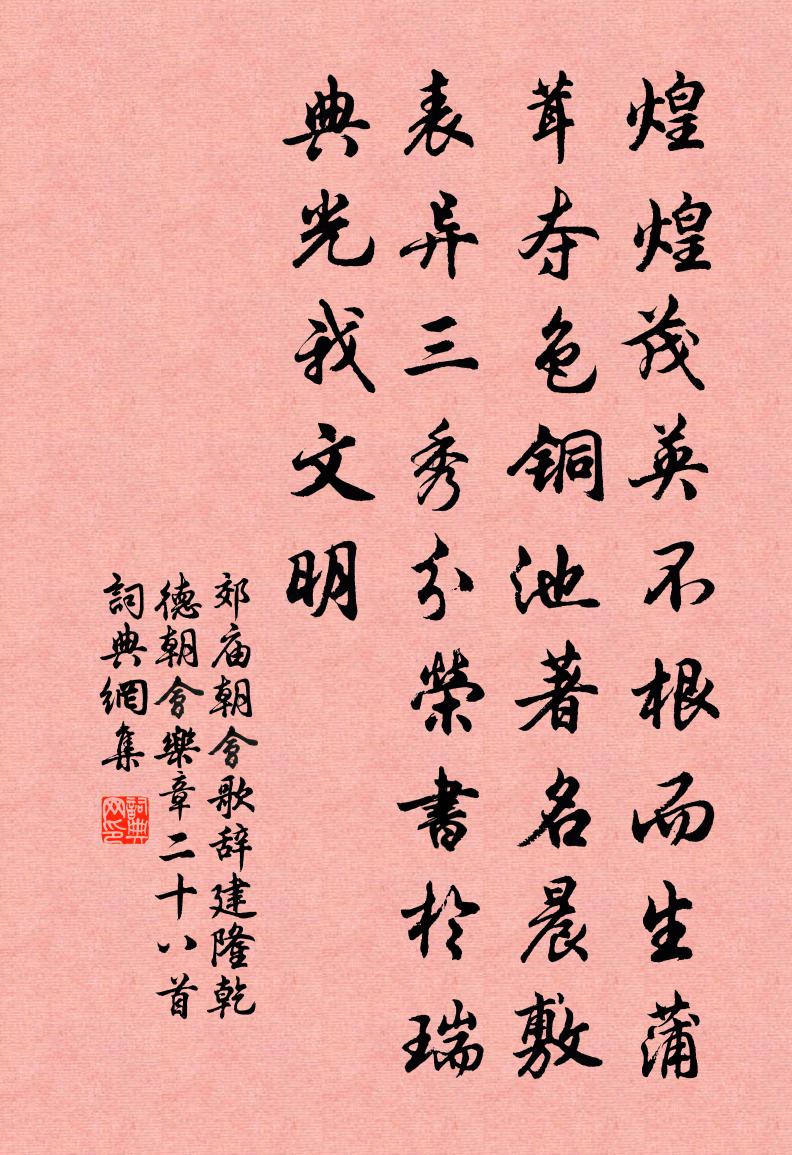 煌煌茂英不根而生蒲
茸夺色铜池著名晨敷
表异三秀分荣書於瑞
典光我文明
郊庙朝會歌辞建隆乾
德朝會樂章二十八首
詞典網集
詞典网印